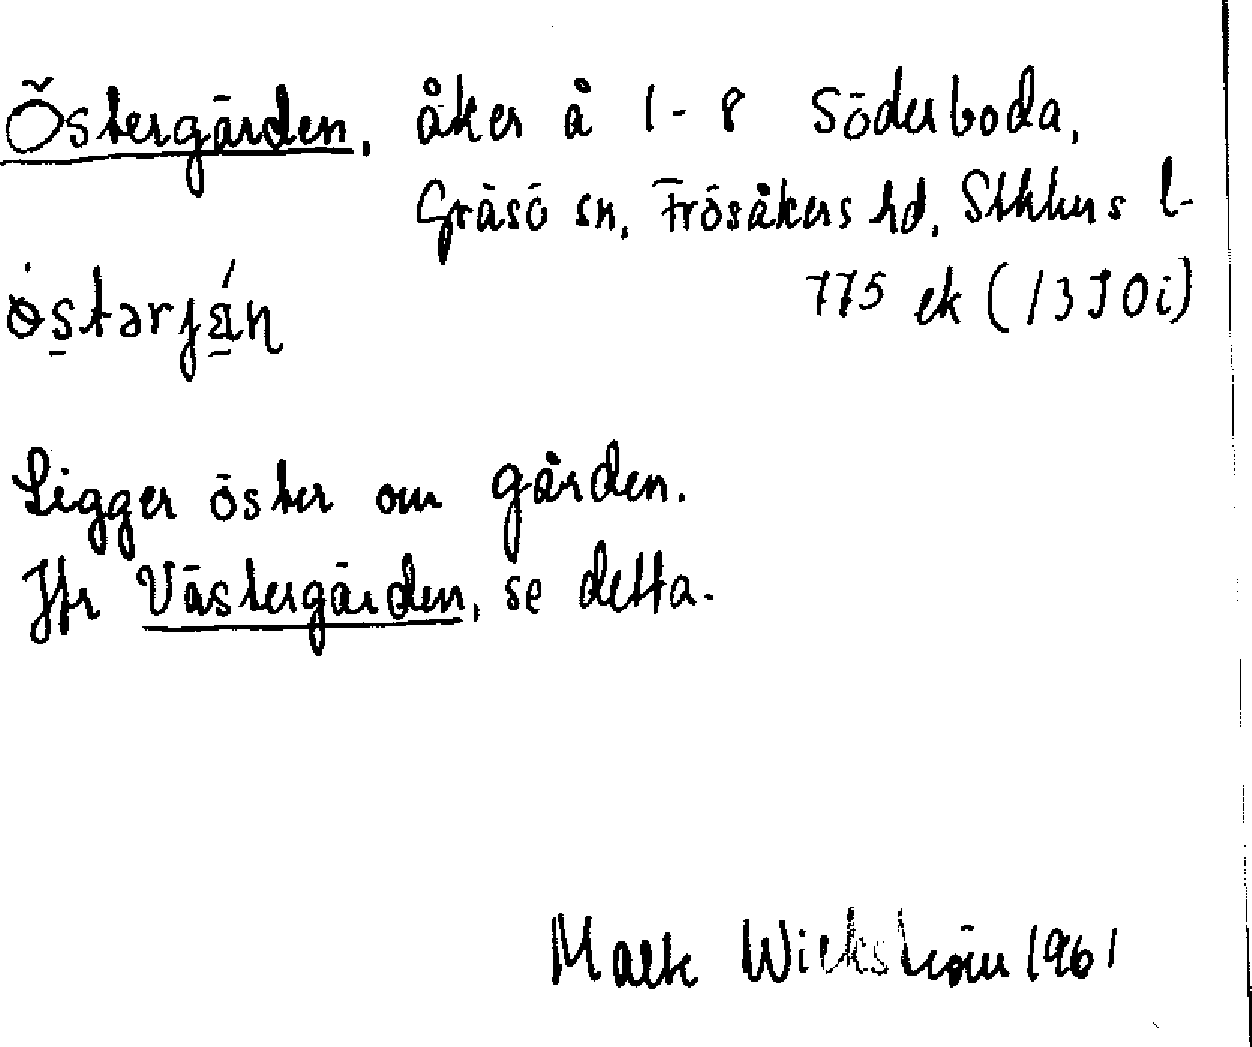 Östergärden, åker å 1-8 Söderboda,
Gräsö sn, Frösåkers hd, Sthlms l-
775 ek (13J0i)
östərjän
Ligger öster om gården.
Jfr Västergärden, se detta.
Wickström 1961